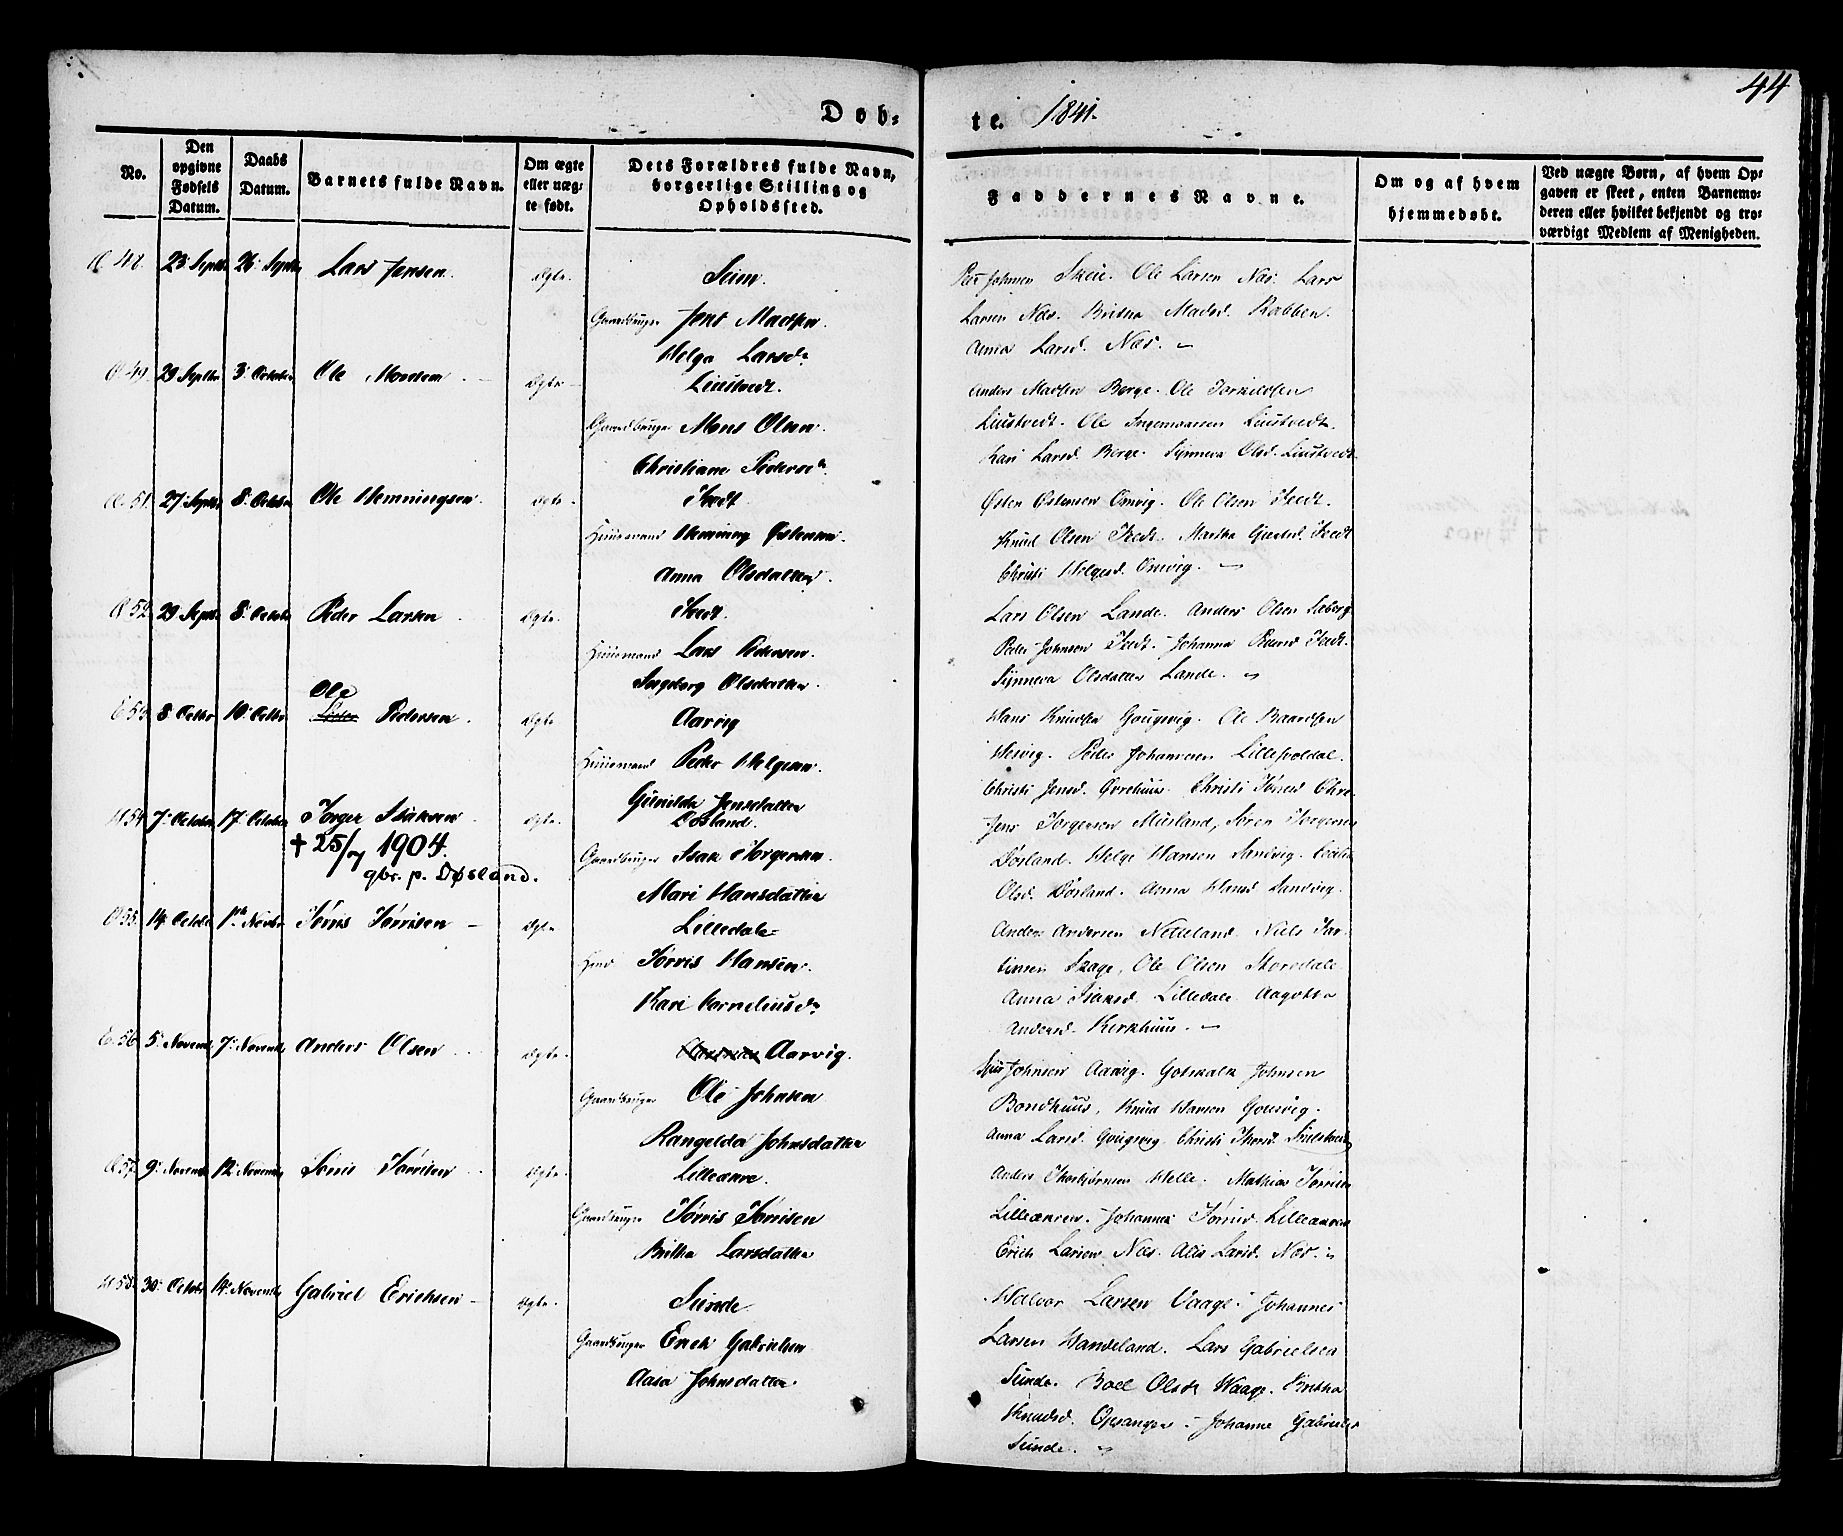 44
Døb-
te. 1841.
No.
Den opgivne Fødsels Datum.
Daabs Datum.
Barnets fulde Navn.
Om ægte eller uæg- te født.
Dets Forældres fulde Navn, borgerlige Stilling og Opholdssted.
Faddernes Navne.
Om og af hvem hjemmedøbt.
Ved uægte Børn, af hvem Op- gaven er skeet, enten Barnemo- deren eller hvilket bekjendt og tro- værdigt Medlem af Menigheden.
48. 23 Septbr 26 Septbr Lars Jensen. Ægte. Seim.
Gaardbruger Jens Madsen.
Helga Larsdr
Peder Johnsen Skeie. Ole Larsen Næs. Lars
Larsen Næs. Britha Madsd. Rabben.
Anna Larsd. Næs.
49. 29 Septbr 3 October Ole Monsen. Ægte Liustvedt.
Gaardbruger Mons Olsen.
Christiane Pedersdr
Anders Madsen Berge. Ole Torkildsen
Liustvedt. Ole Ingemansen Liustvedt.
Kari Larsd. Berge. Synneva Olsd. Liustvedt.
51. 27 Septbr 8 October Ole Hemningsen. Ægte. Tvedt.
Huusmand Hemning Østensen.
Anna Olsdatter.
Østen Østensen Omvig. Ole Olsen Tvedt.
Knud Olsen Tvedt. Martha Tvedt
Christi Helgesd. Omvig.
52. 29 Septbr 8 October Peder Larsen. Ægte. Tvedt.
Huusmand Lars Pedersen.
Ingeborg Olsdatter.
Lars Olsen Lande. Anders Olsen Sæberg.
Peder Johnsen Tvedt. Johanna Tvedt.
Synneva Olsdatter Lande.
53 8 Octbr 10 Octbr Ole Pedersen. Ægte Aarvig
Huusmand Peder Helgesen.
Gunilda Jensdatter
Hans Knudsen Gougsvig. Ole Baardsen
Hesvig. Peder Johannesen Lillefosdal.
Christi Jensd. Øvrehuus. Christi Tørresd. Øvre-
54 7 October 17 October Torger Isaksen. Ægte Døsland.
† 25/7 1904.
gbr. p. Døsland.
Gaardbruger Isak Torgersen.
Mari Hansdatter
Jens Torgersen Miusland, Søren Torgersen
Døsland. Helge Hansen Sandvig. Cecilia
Olsd. Døsland. Anna Hansd Sandvig.
55. 14 October Novbr Tørris Tørrisen Ægte Lilledale
Tørris Hansen.
Kari Corneliusdr
Anders Andersen Netteland. Niels
Skage, Ole Olsen Storedale
Anna Isaksd. Lilledale. Aagotha
Andersd. Kerkhuus.
56. 5 Novembr 7 Novembr Anders Olsen Ægte. Aarvig.
Gaardbruger Ole Johnsen
Rangelda Johnsdatter
Johnsen Aarvig. Gotskalk Johnsen
Bondhuus, Knud Larsen Gousvig.
Anna Larsd. Gougsvig. Christi
57. 9 Novembr 12 Novembr Tørris Tørrisen Ægte. Lilleænre.
Gaardbruger Tørris Tørrisen
Britha Larsdatter
Anders Thorbjørnsen Helle. Mathias Tørrisen
Lilleænren. Johannes Tørrisd. Lilleænren
Erich Larsen Næs. Alis Larsd. Næs.
58. 30 October 14 Novembr Gabriel Erichsen Ægte Sunde
Gaardbruger Erich Gabrielsen
Aasa Johnsdatter
Halvor Larsen Vaage. Johannes
Larsen Handeland. Lars Gabrielsen
Sunde. Boel Olsdr Waage. Britha
Knudsd. Opsanger. Johanne Gabrielsd
Sunde.